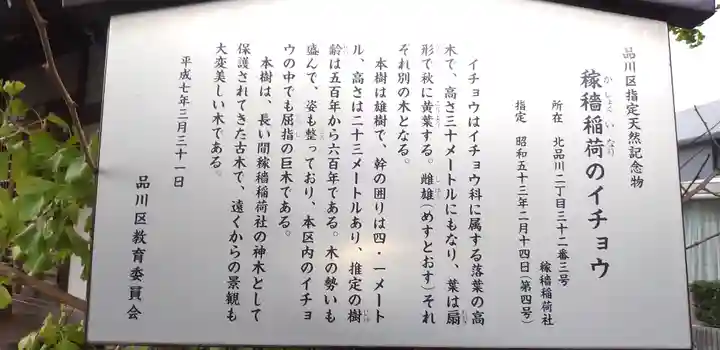 品川区指定天然記念物
稼穡稲荷のイチョウ
かしょくいなり
所在 北品川二丁目三十二番三号
稼穡稲荷社
指定 昭和五十三年二月十四日(第四号)
イチョウはイチョウ科に属する落葉の高
木で、高さ三十メートルにもなり、葉は扇
形で秋に黄葉する。雌雄(めすとおす)それ
ぞれ別の木となる。
本樹は雄樹で、幹の囲りは四・一メート
ル、高さは二十三メートルあり、推定の樹
齢は五百年から六百年である。木の勢いも
盛んで、姿も整っており、本区内のイチョ
ウの中でも屈指の巨木である。
本樹は、長い間稼穡稲荷社の神木として
保護されてきた古木で、遠くからの景観も
大変美しい木である。
平成七年三月三十一日
品川区教育委員会